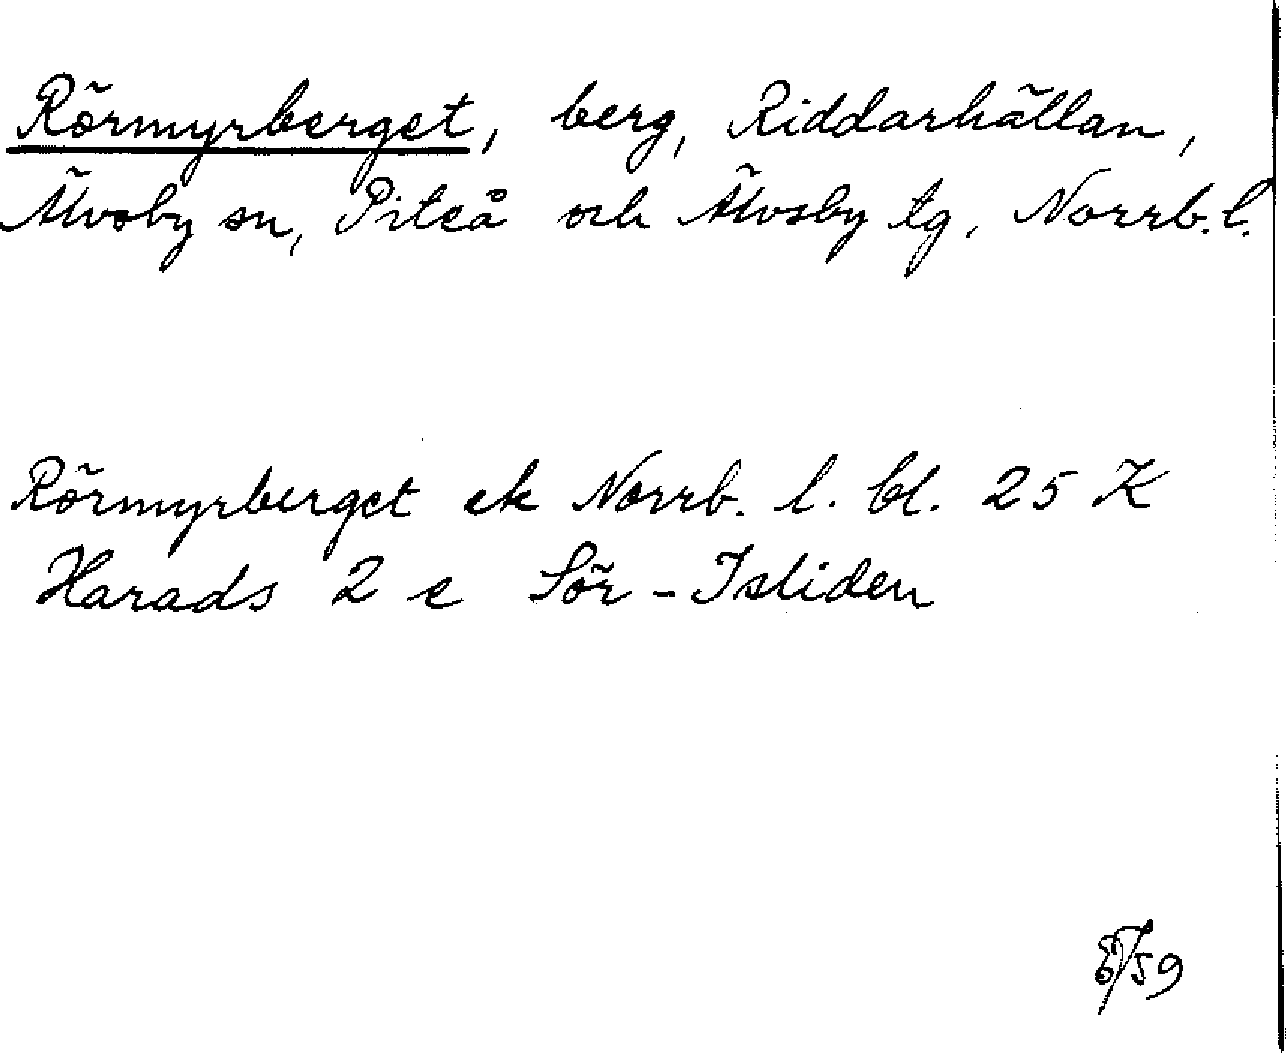 Rörmyrberget, berg, Riddarhällan,
Älvsby sn, Piteå och Älvsby tg, Norrb. l.
Rörmyrberget ek Norrb. l. bl. 25 K
Harads 2 e Sör-Isliden